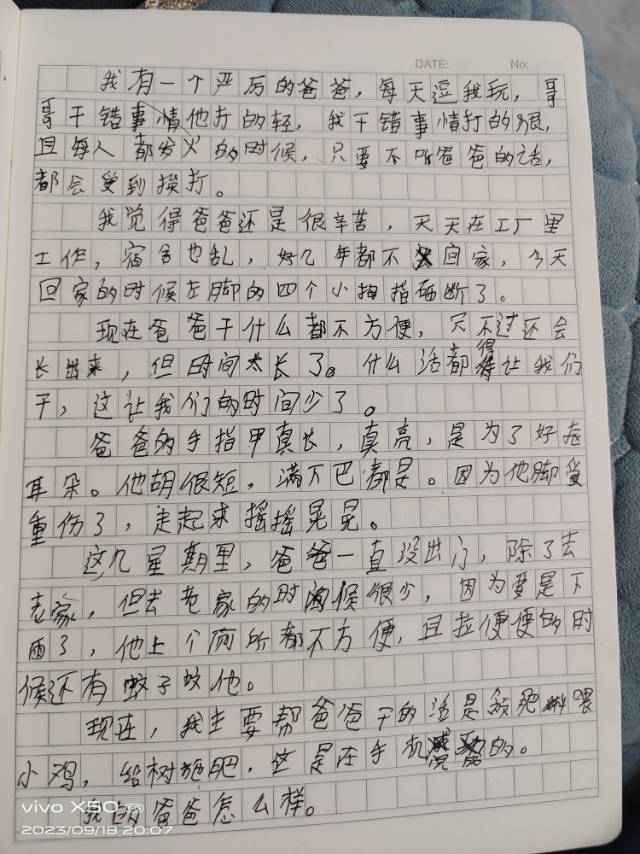 DATE: No:
我有一个严厉的爸爸，每天逗我玩，哥
哥干错事情他打的轻，我干错事情打的狠，
且每人都发火的时候，只要不听爸爸的话，
都会受到挨打。
我觉得爸爸还是很辛苦，天天在工厂里
工作，宿舍也乱，好几年都不回家，今天
回家的时候左脚的四个小拇指砸断了。
现在爸爸干什么都不方便，只不过还会
长出来，但时间太长了。什么活都得让我们
干，这让我们的时间少了。
爸爸的手指甲真长，真亮，是为了好
耳朵。他胡很短，满下巴都是。因为他脚受
重伤了，走起来摇摇晃晃。
这几星期里，爸爸一直没出门，除了去
老家，但去老家的时候很少，因为要是下
雨了，他上个厕所都不方便，且拉便便的时
候还有蚊子蚊他。
现在，我主要帮爸爸干的活是 喂
小鸡，给树施肥，这是在手机 的。
我的爸爸怎么样。
vivo X90
2023/09/18 20:07